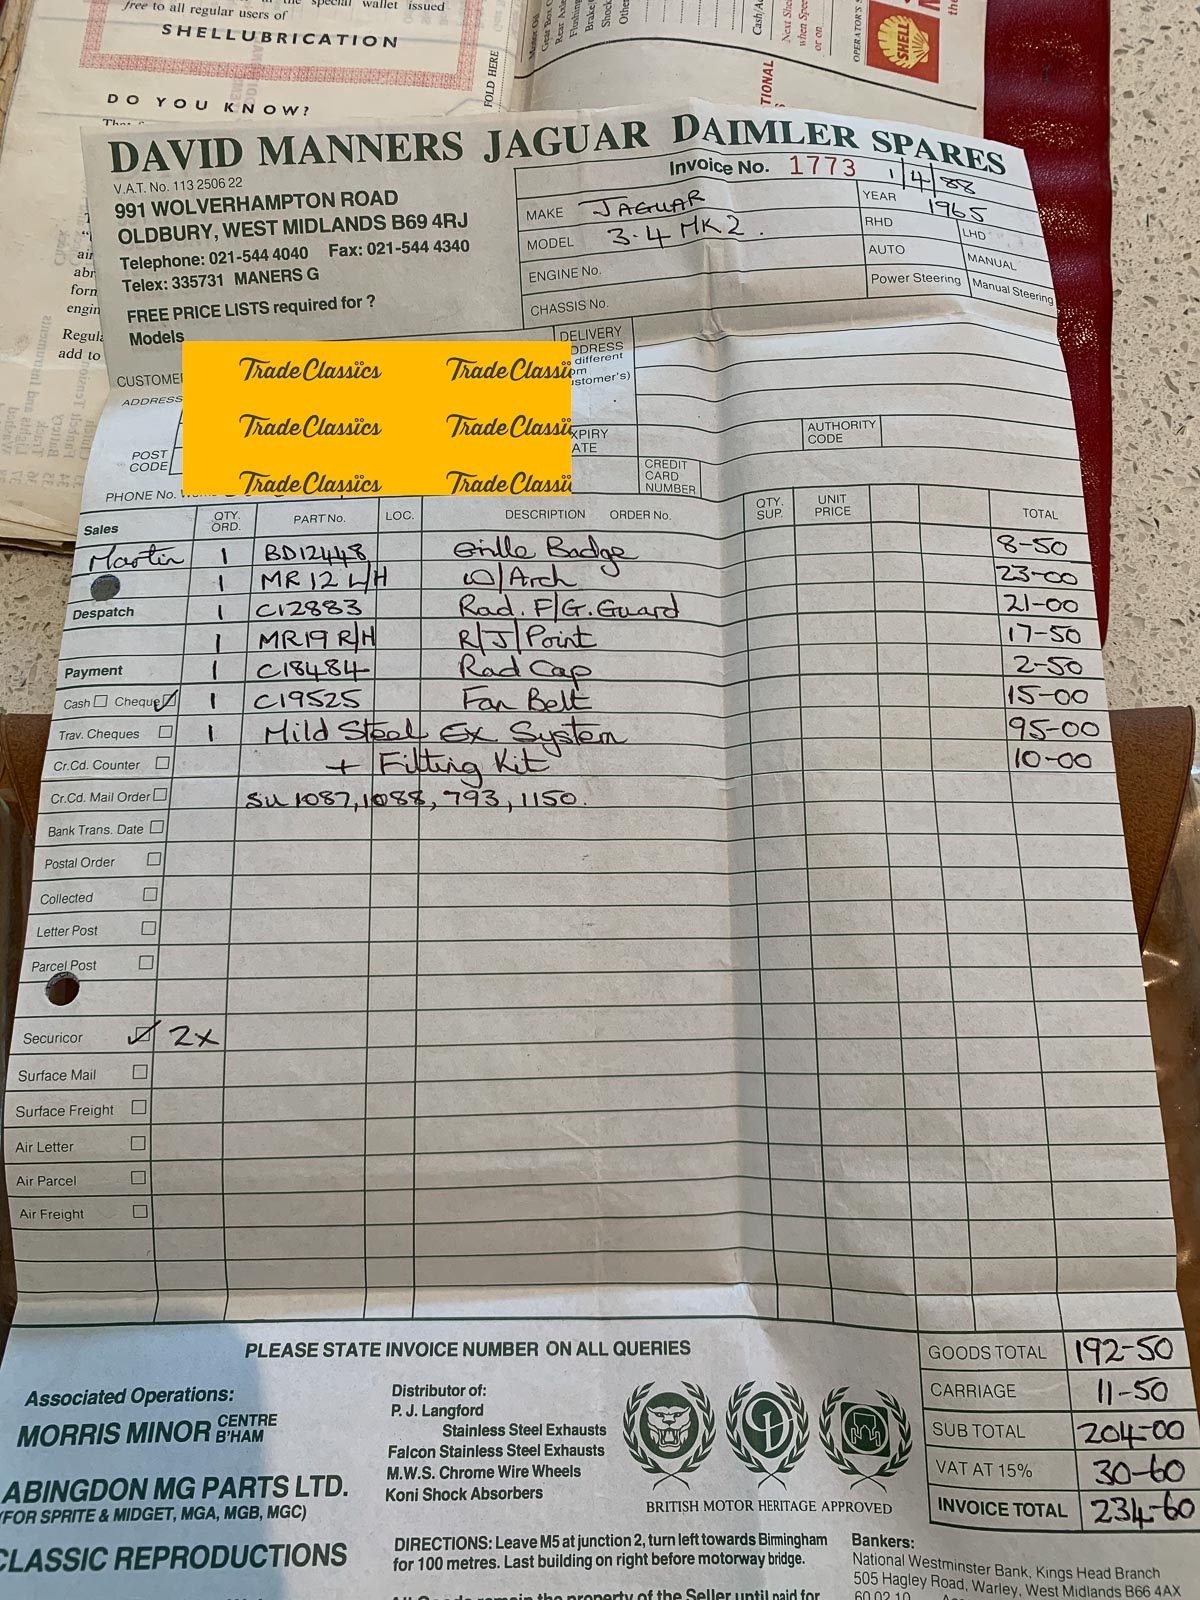 free to all regular users of
SHELLUBRICATION
DO YOU KNOW?
FOLD HERE
OPERATOR'S
SHELL
DAVID MANNERS JAGUAR DAIMLER SPARES
V.A.T. No. 113 2506 22
991 WOLVERHAMPTON ROAD
OLDBURY, WEST MIDLANDS B69 4RJ
Telephone: 021-544 4040 Fax: 021-544 4340
Telex: 335731 MANERS G
FREE PRICE LISTS required for ?
Models
Invoice No. 1773 1/4/88
MAKE JAGUAR YEAR 1965
MODEL 3.4 MK2. RHD LHD
ENGINE No. AUTO MANUAL
CHASSIS No. Power Steering Manual Steering
DELIVERY
different
stomer's)
CUSTOME
ADDRESS
POST CODE
PHONE No.
TradeClassics TradeClassi
TradeClassics TradeClassi
TradeClassics TradeClassi
AUTHORITY CODE
CREDIT CARD NUMBER
Sales QTY. ORD. PART No. LOC. DESCRIPTION ORDER No. QTY. SUP. UNIT PRICE TOTAL
Martin 1 BD12448 Grille Badge 8-50
1 MR12 L/H W/Arch 23-00
Despatch 1 C12883 Rad. F/G. Guard 21-00
1 MR19 R/H R/J/Point 17-50
Payment 1 C18484 Rad Cap 2-50
Cash Cheque 1 C19525 Fan Belt 15-00
Trav. Cheques 1 Mild Steel Ex System 95-00
Cr.Cd. Counter + Fitting Kit 10-00
Cr.Cd. Mail Order SU 1087, 1088, 793, 1150.
Bank Trans. Date
Postal Order
Collected
Letter Post
Parcel Post
Securicor 2x
Surface Mail
Surface Freight
Air Letter
Air Parcel
Air Freight
PLEASE STATE INVOICE NUMBER ON ALL QUERIES
GOODS TOTAL 192-50
CARRIAGE 11-50
SUB TOTAL 204-00
VAT AT 15% 30-60
INVOICE TOTAL 234-60
Associated Operations:
MORRIS MINOR CENTRE B'HAM
ABINGDON MG PARTS LTD.
(FOR SPRITE & MIDGET, MGA, MGB, MGC)
CLASSIC REPRODUCTIONS
Distributor of:
P. J. Langford
Stainless Steel Exhausts
Falcon Stainless Steel Exhausts
M.W.S. Chrome Wire Wheels
Koni Shock Absorbers
BRITISH MOTOR HERITAGE APPROVED
DIRECTIONS: Leave M5 at junction 2, turn left towards Birmingham
for 100 metres. Last building on right before motorway bridge.
Bankers:
National Westminster Bank, Kings Head Branch
505 Hagley Road, Warley, West Midlands B66 4AX